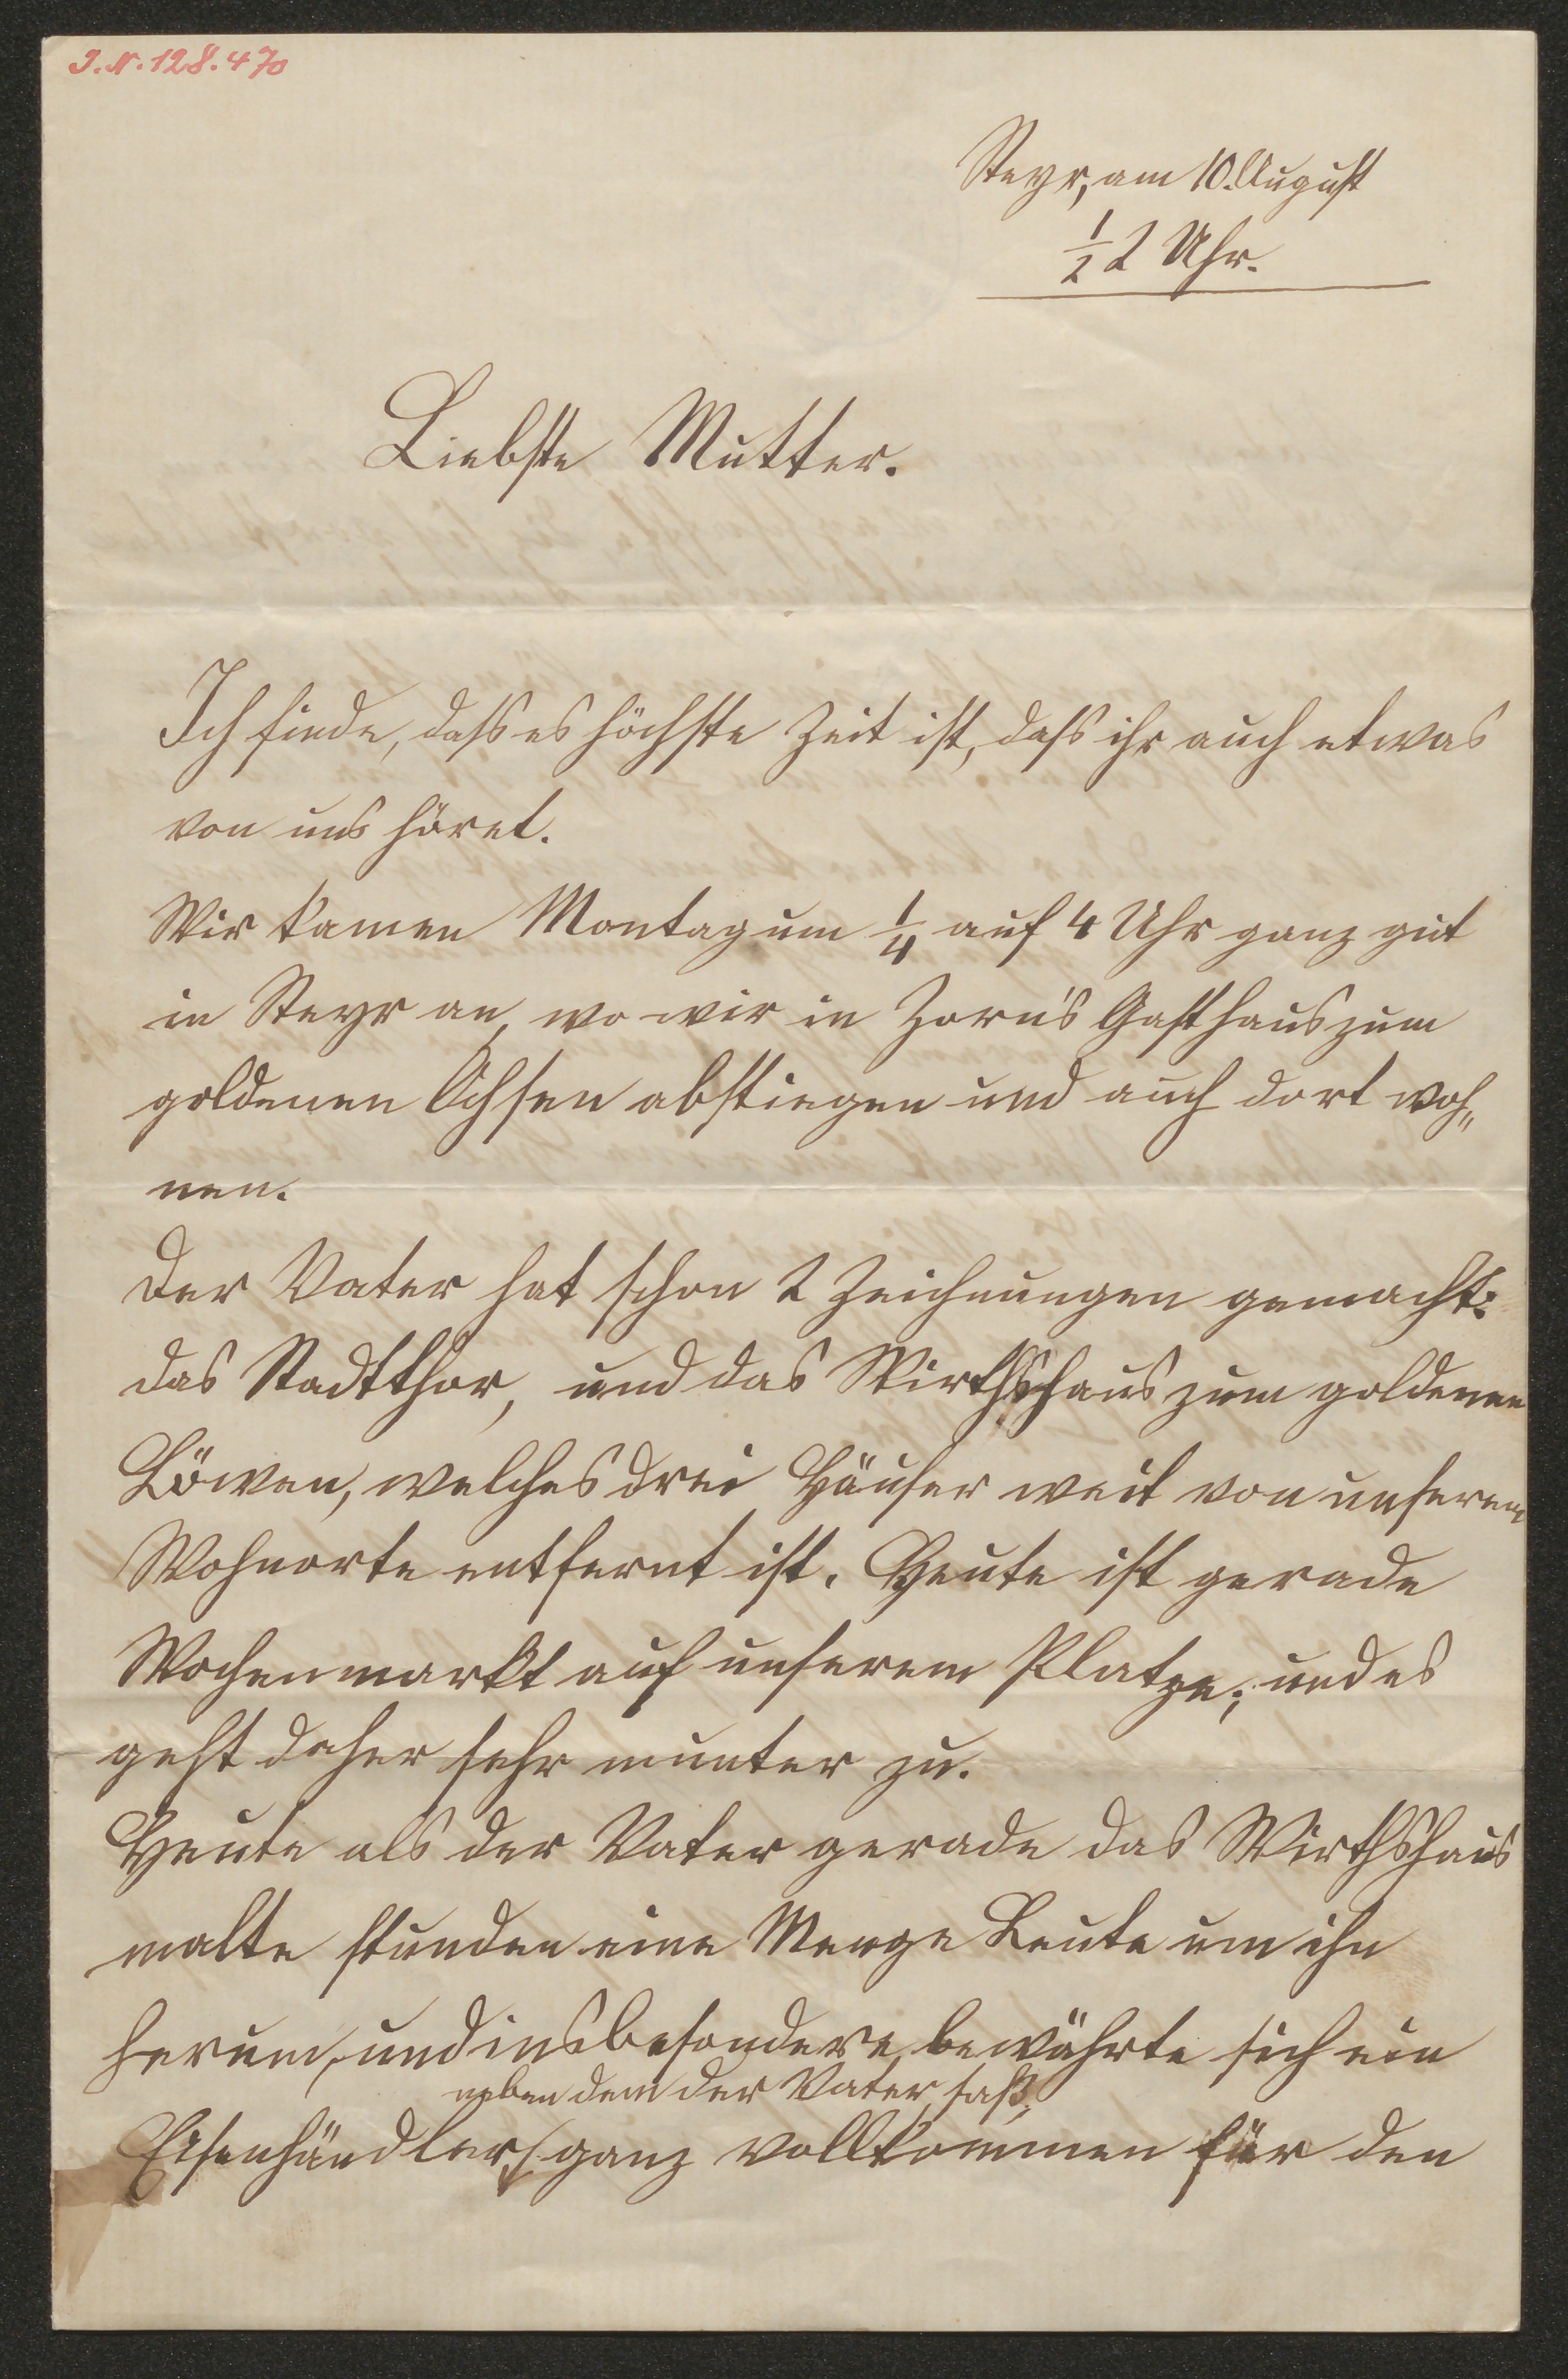 I.N.128.470
Steyr, am 10. August
1/2 2 Uhr.
Liebste Mutter.
Ich finde, dass es höchste Zeit ist, dass ihr auch etwas
von uns höret.
Wir kamen Montag um 1/4 auf 4 Uhr ganz gut
in Steyr an, wo wir in Zorn's Gasthaus zum
goldenen Ochsen abstiegen und auch dort woh„
nen.
Der Vater hat schon 2 Zeichnungen gemacht:
das Stadtthor, und das Wirthshaus zum goldenen
Löwen, welches drei Häuser weit von unserem
Wohnorte entfernt ist. Heute ist gerade
Wochenmarkt auf unserem Platze; und es
geht daher sehr munter zu.
Heute als der Vater gerade das Wirthshaus
malte stunden eine Menge Leute um ihn
herum, und insbesondere bewährte sich ein
neben dem der Vater saß,
Eisenhändler, ganz vollkommen für den